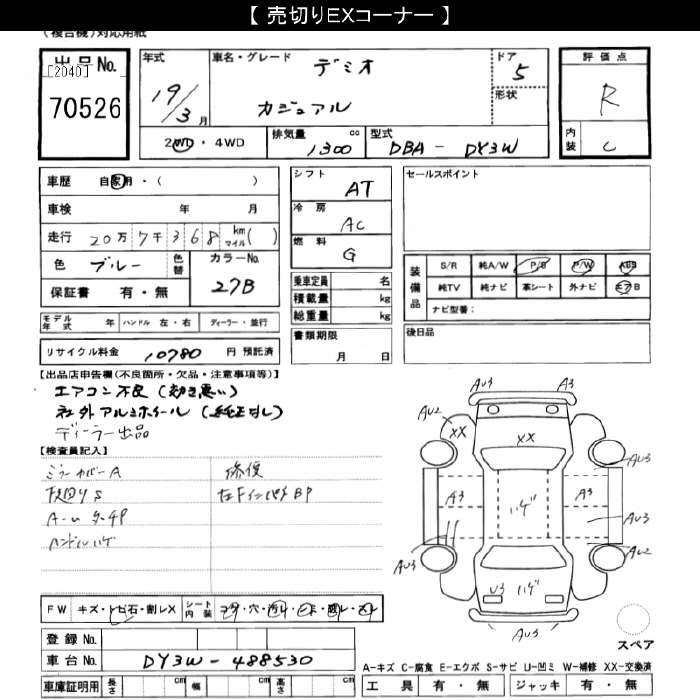 【 売切りEXコーナー 】
(複合機)対応用紙
出品No.
[2040]
70526
年式
19/3月
車名・グレード
デミオ
カジュアル
ドア
5
形状
評価点
R
内装
C
2WD・4WD
排気量
1300 cc
型式
DBA - DY3W
車歴 自家用・( )
車検 年 月
走行 20万 7千 3 6 8 km マイル( )
色 ブルー
色替
カラーNo.
27B
保証書 有・無
シフト
AT
冷房
AC
燃料
G
乗車定員 名
積載量 kg
総重量 kg
書類期限
月 日
セールスポイント
装備品
S/R 純A/W P/S P/W ABS
純TV 純ナビ 革シート 外ナビ エアB
ナビ型番:
後日品
モデル年式 年 ハンドル 左・右 ディーラー・並行
リサイクル料金 10780 円 預託済
【出品店申告欄(不良箇所・欠品・注意事項等)】
エアコン不良(効き悪い)
社外アルミホイール(純正なし)
ディーラー出品
【検査員記入】
ミラーカバーA
下回りS
ハンドルハゲ
修復
左Fインパネ BP
FW キズ・トビ石・割レX
シート内装
登録No.
車台No. DY3W-488530
車庫証明用 長さ cm 幅 cm 高さ cm
AU3
A3
AU2
XX
XX
AU3
A3
ハゲ
A3
AU3
AU3
AU2
U3
ハゲ
AU3
スペア
A-キズ C-腐食 E-エクボ S-サビ U-凹ミ W-補修 XX-交換済
工具 有・無 ジャッキ 有・無